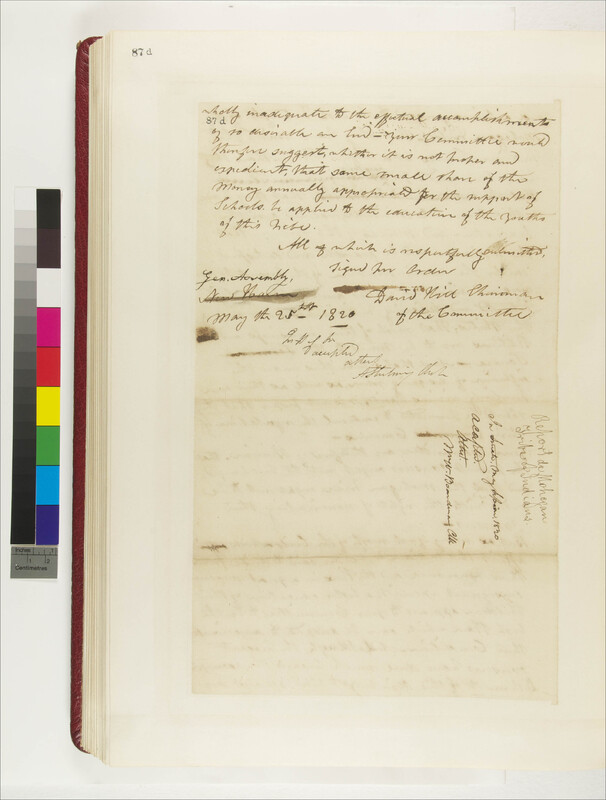 87d
wholly inadequate to the effectual accomplishment
87 d
of so desirable an End – Your Committee would
therefore suggest, whether it is not proper and
expedient, that some small share of the
Money annually appropriated for the support of
Schools be applied to the education of the Youths
of this Tribe.
All of which is respectfully submitted,
Signd per Order
Gen. Assembly,
New Haven
David Hill Chairman
May the 25th 1820
of the Committee
In H of
accepted
attest
Clk
Report de Mohegan
Tribe of Indians
In Senate, May 1820
accepted
Attest
Boardman Clk
Inches
1 2 3
Centimetres